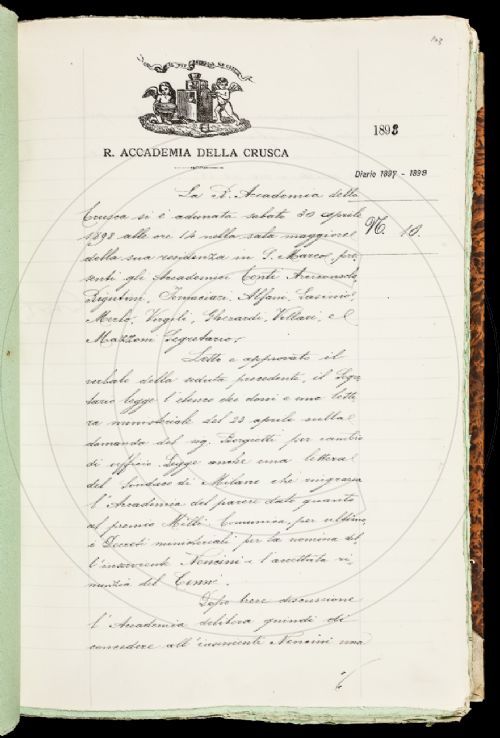 103
R. ACCADEMIA DELLA CRUSCA
1898
Diario 1897 - 1899
N. 13.
La R. Accademia della
Crusca si è adunata sabato 30 aprile
1898 alle ore 14 nella sala maggiore
della sua residenza in S. Marco, pre-
senti gli Accademici Conti Arciconsolo,
Rigutini, Tortoli, Alfani,
Merlo, Virgili, Gherardi, Villari, e il
Mazzoni Segretario.
Letto e approvato il
verbale della seduta precedente, il Segre-
tario legge l'elenco dei doni e una lette-
ra ministeriale del 23 aprile sulla
domanda del sig. per cambio
di ufficio. Legge anche una lettera
del Sindaco di Milano che ringrazia
l'Accademia del parere dato quanto
al premio Milli. Comunica per ultimo
i Decreti ministeriali per la nomina del-
l'inserviente Nencini e l'accettata ri-
nunzia del
Dopo breve discussione
l'Accademia delibera quindi di
concedere all'inserviente Nencini una